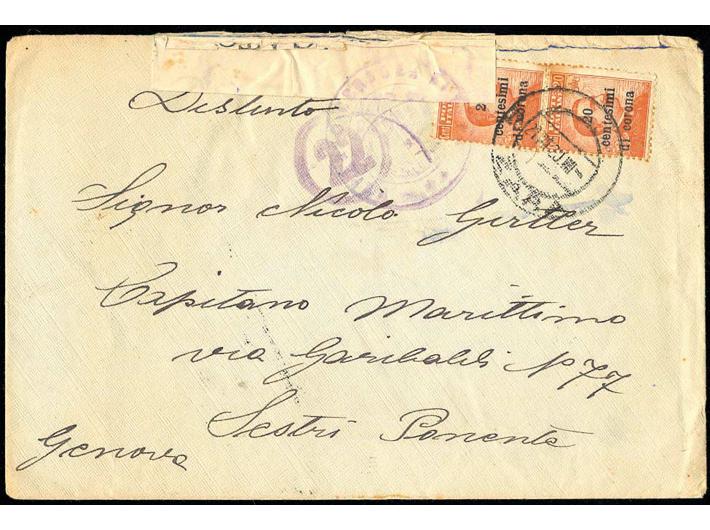 Distinto
20
centesimi
di corona
2
centesimi
di corona
22
Signor Nicolò Gertler
Capitano Marittimo
via Garibaldi No 77
Sestri Ponente
Genova